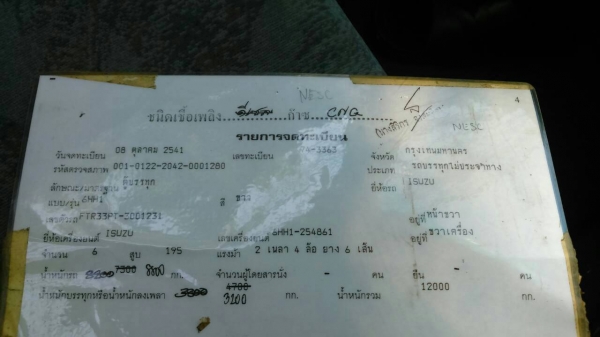 NESC
4
ชนิดเชื้อเพลิง ก๊าซ CNG
NESC
รายการจดทะเบียน
วันจดทะเบียน 08 ตุลาคม 2541 เลขทะเบียน -3363 จังหวัด กรุงเทพมหานคร
รหัสตรวจสภาพ 001-0122-2042-0001280 ประเภท รถบรรทุกไม่ประจำทาง
ลักษณะ/มาตรฐาน ตู้บรรทุก ยี่ห้อรถ ISUZU
แบบ/รุ่น 6HH1 สี ขาว
เลขตัวรถ อยู่ที่ หน้าขวา
ยี่ห้อเครื่องยนต์ ISUZU เลขเครื่องยนต์ 6HH1-254861 อยู่ที่ ขวาเครื่อง
จำนวน 6 สูบ 195 แรงม้า 2 เพลา 4 ล้อ ยาง 6 เส้น
น้ำหนักรถ กก. จำนวนผู้โดยสารนั่ง - คน ยืน - คน
น้ำหนักบรรทุกหรือน้ำหนักลงเพลา 3300 4700 3200 กก. น้ำหนักรวม 12000 กก.